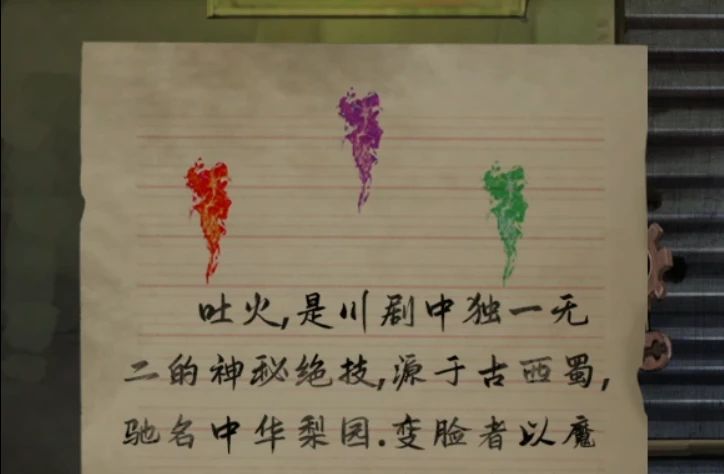 吐火,是川剧中独一无
二的神秘绝技,源于古西蜀,
驰名中华梨园.变脸者以魔